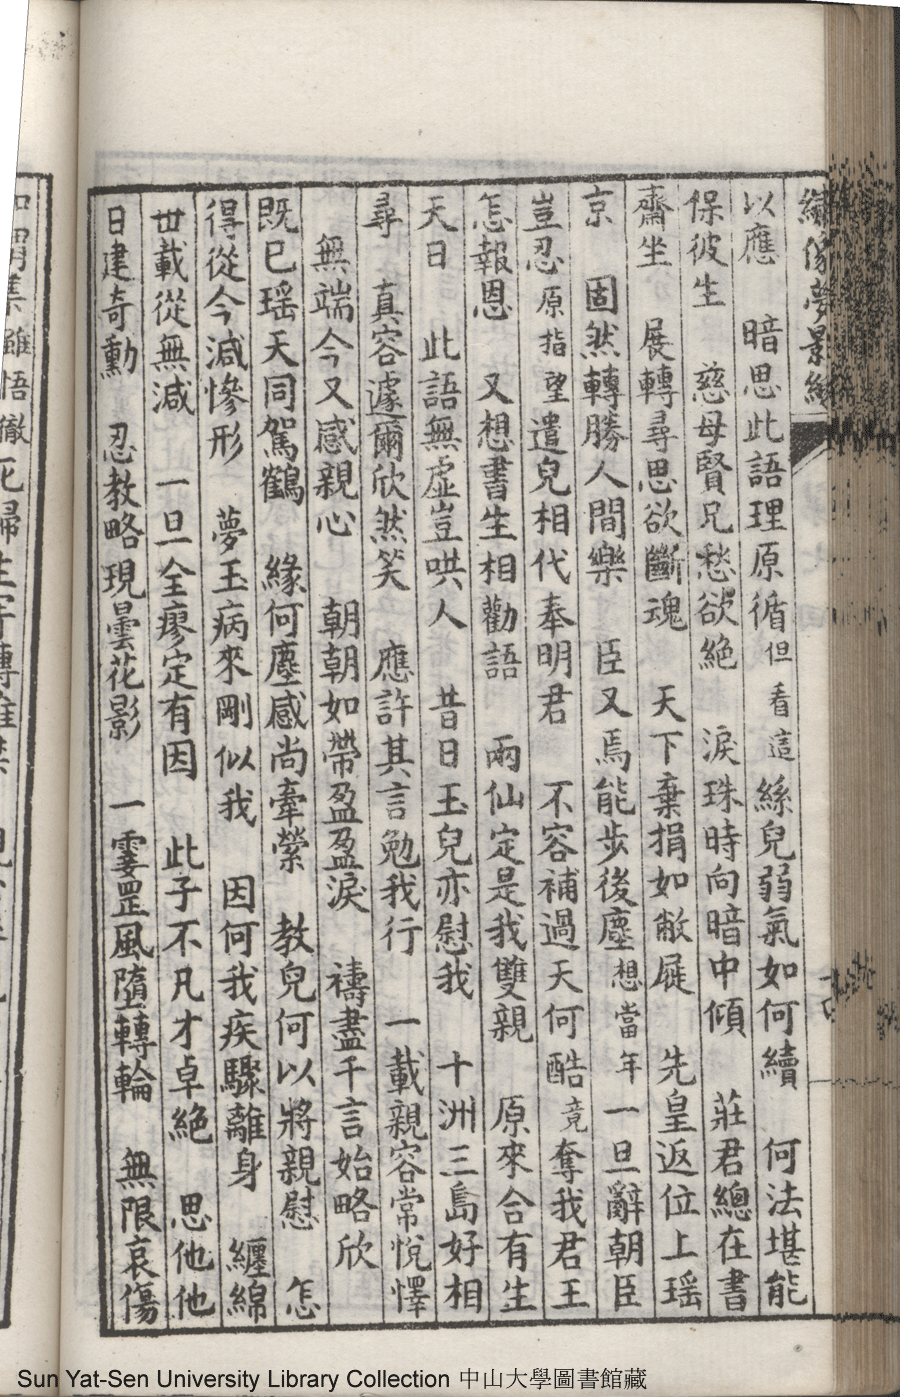 繡像夢影緣
以應　暗思此語理原循但看這絲兒弱氣如何續　何法堪能
保彼生　慈母賢兄愁欲絶　淚珠時向暗中傾　莊君總在書
齋坐　展轉尋思欲斷魂　天下棄捐如敝屣　先皇返位上瑶
京　固然轉勝人間樂　臣又焉能步後塵想當年一旦辭朝臣
豈忍原指望遣兒相代奉明君　不容補過天何酷竟奪我君王
怎報恩　又想書生相勸語　兩仙定是我雙親　原來合有生
天日　此語無虛豈哄人　昔日玉兒亦慰我　十洲三島好相
尋　真容遽爾欣然笑　應許其言勉我行　一載親容常悅懌
無端今又感親心　朝朝如帶盈盈淚　禱盡千言始略欣
既已瑶天同駕鶴　緣何塵感尚牽縈　教兒何以將親慰　怎
得從今減慘形　夢玉病來剛似我　因何我疾驟離身　纏綿
世載從無減　一旦全瘳定有因　此子不凡才卓絶　思他他
日建奇勳　忍教略現曇花影　一霎罡風墮轉輪　無限哀傷
Sun Yat-Sen University Library Collection 中山大學圖書館藏